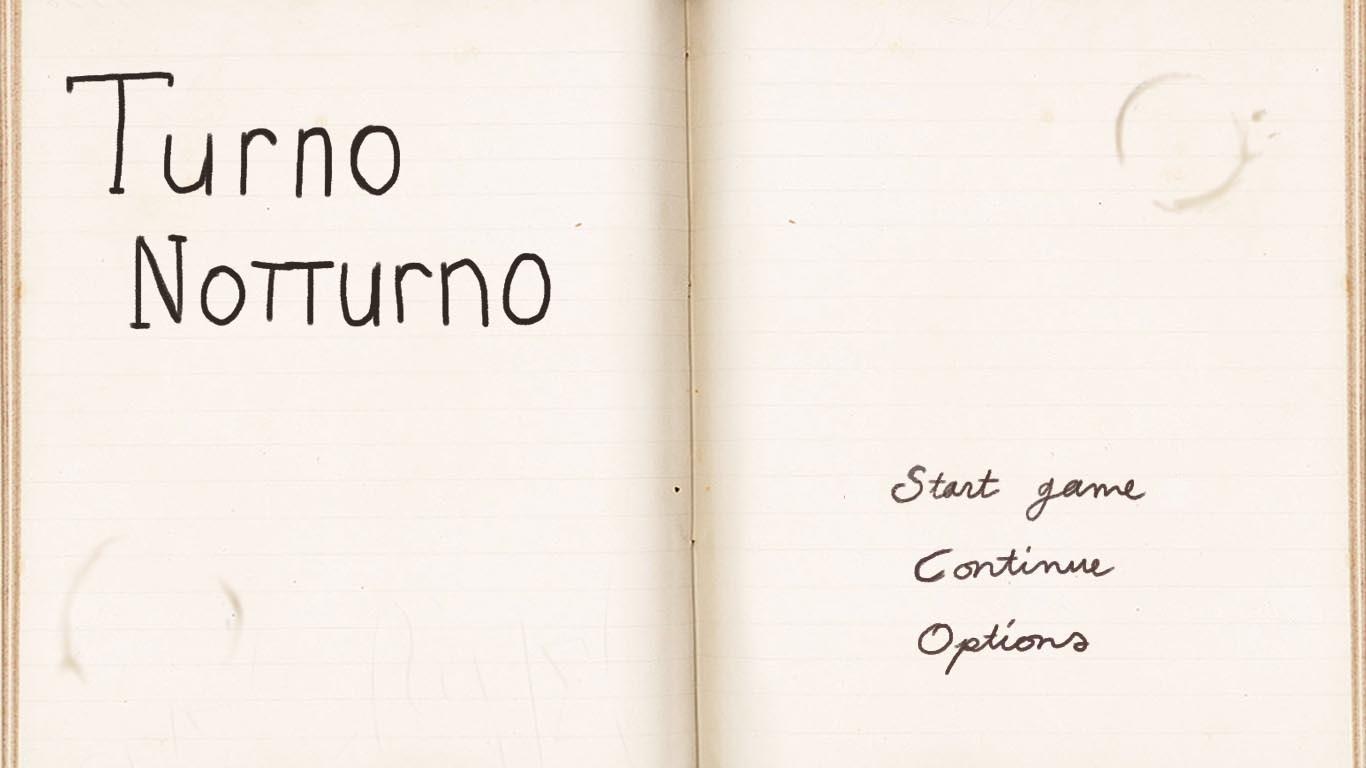 Turno
Notturno
Start game
Continue
Options